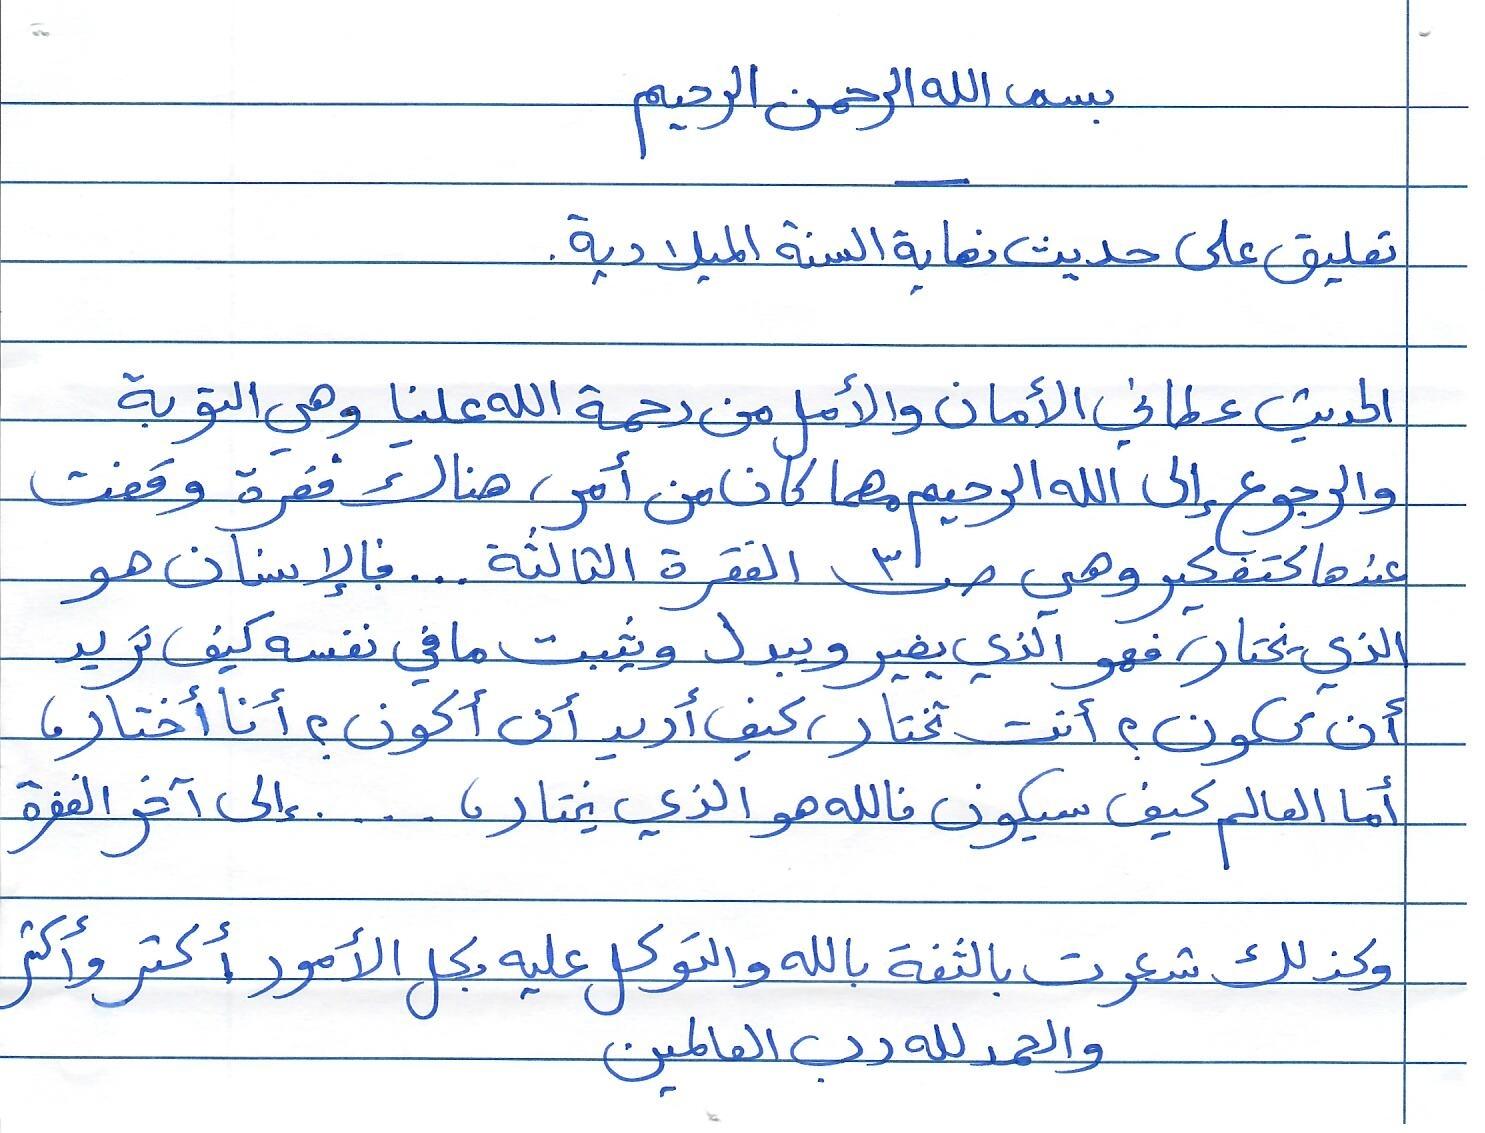 بسم الله الرحمن الرحيم
تعليق على حديث نهاية السنة الميلادية.
الحديث عطاني الأمان والأمل من رحمة الله علينا وهي التوبة
والرجوع إلى الله الرحيم مهما كان من أمر، هناك فقرة وقفت
عندها كتفكير وهي ص ٣ الفقرة الثالثة ... فالإنسان هو
الذي يختار، فهو الذي يغير ويبدل ويثبت ما في نفسه كيف تريد
أن تكون؟ أنت تختار، كيف أريد أن أكون؟ أنا أختار،
أما العالم كيف سيكون فالله هو الذي يختار، .... إلى آخر الفقرة
وكذلك شعرت بالثقة بالله والتوكل عليه بكل الأمور أكثر وأكثر
والحمد لله رب العالمين